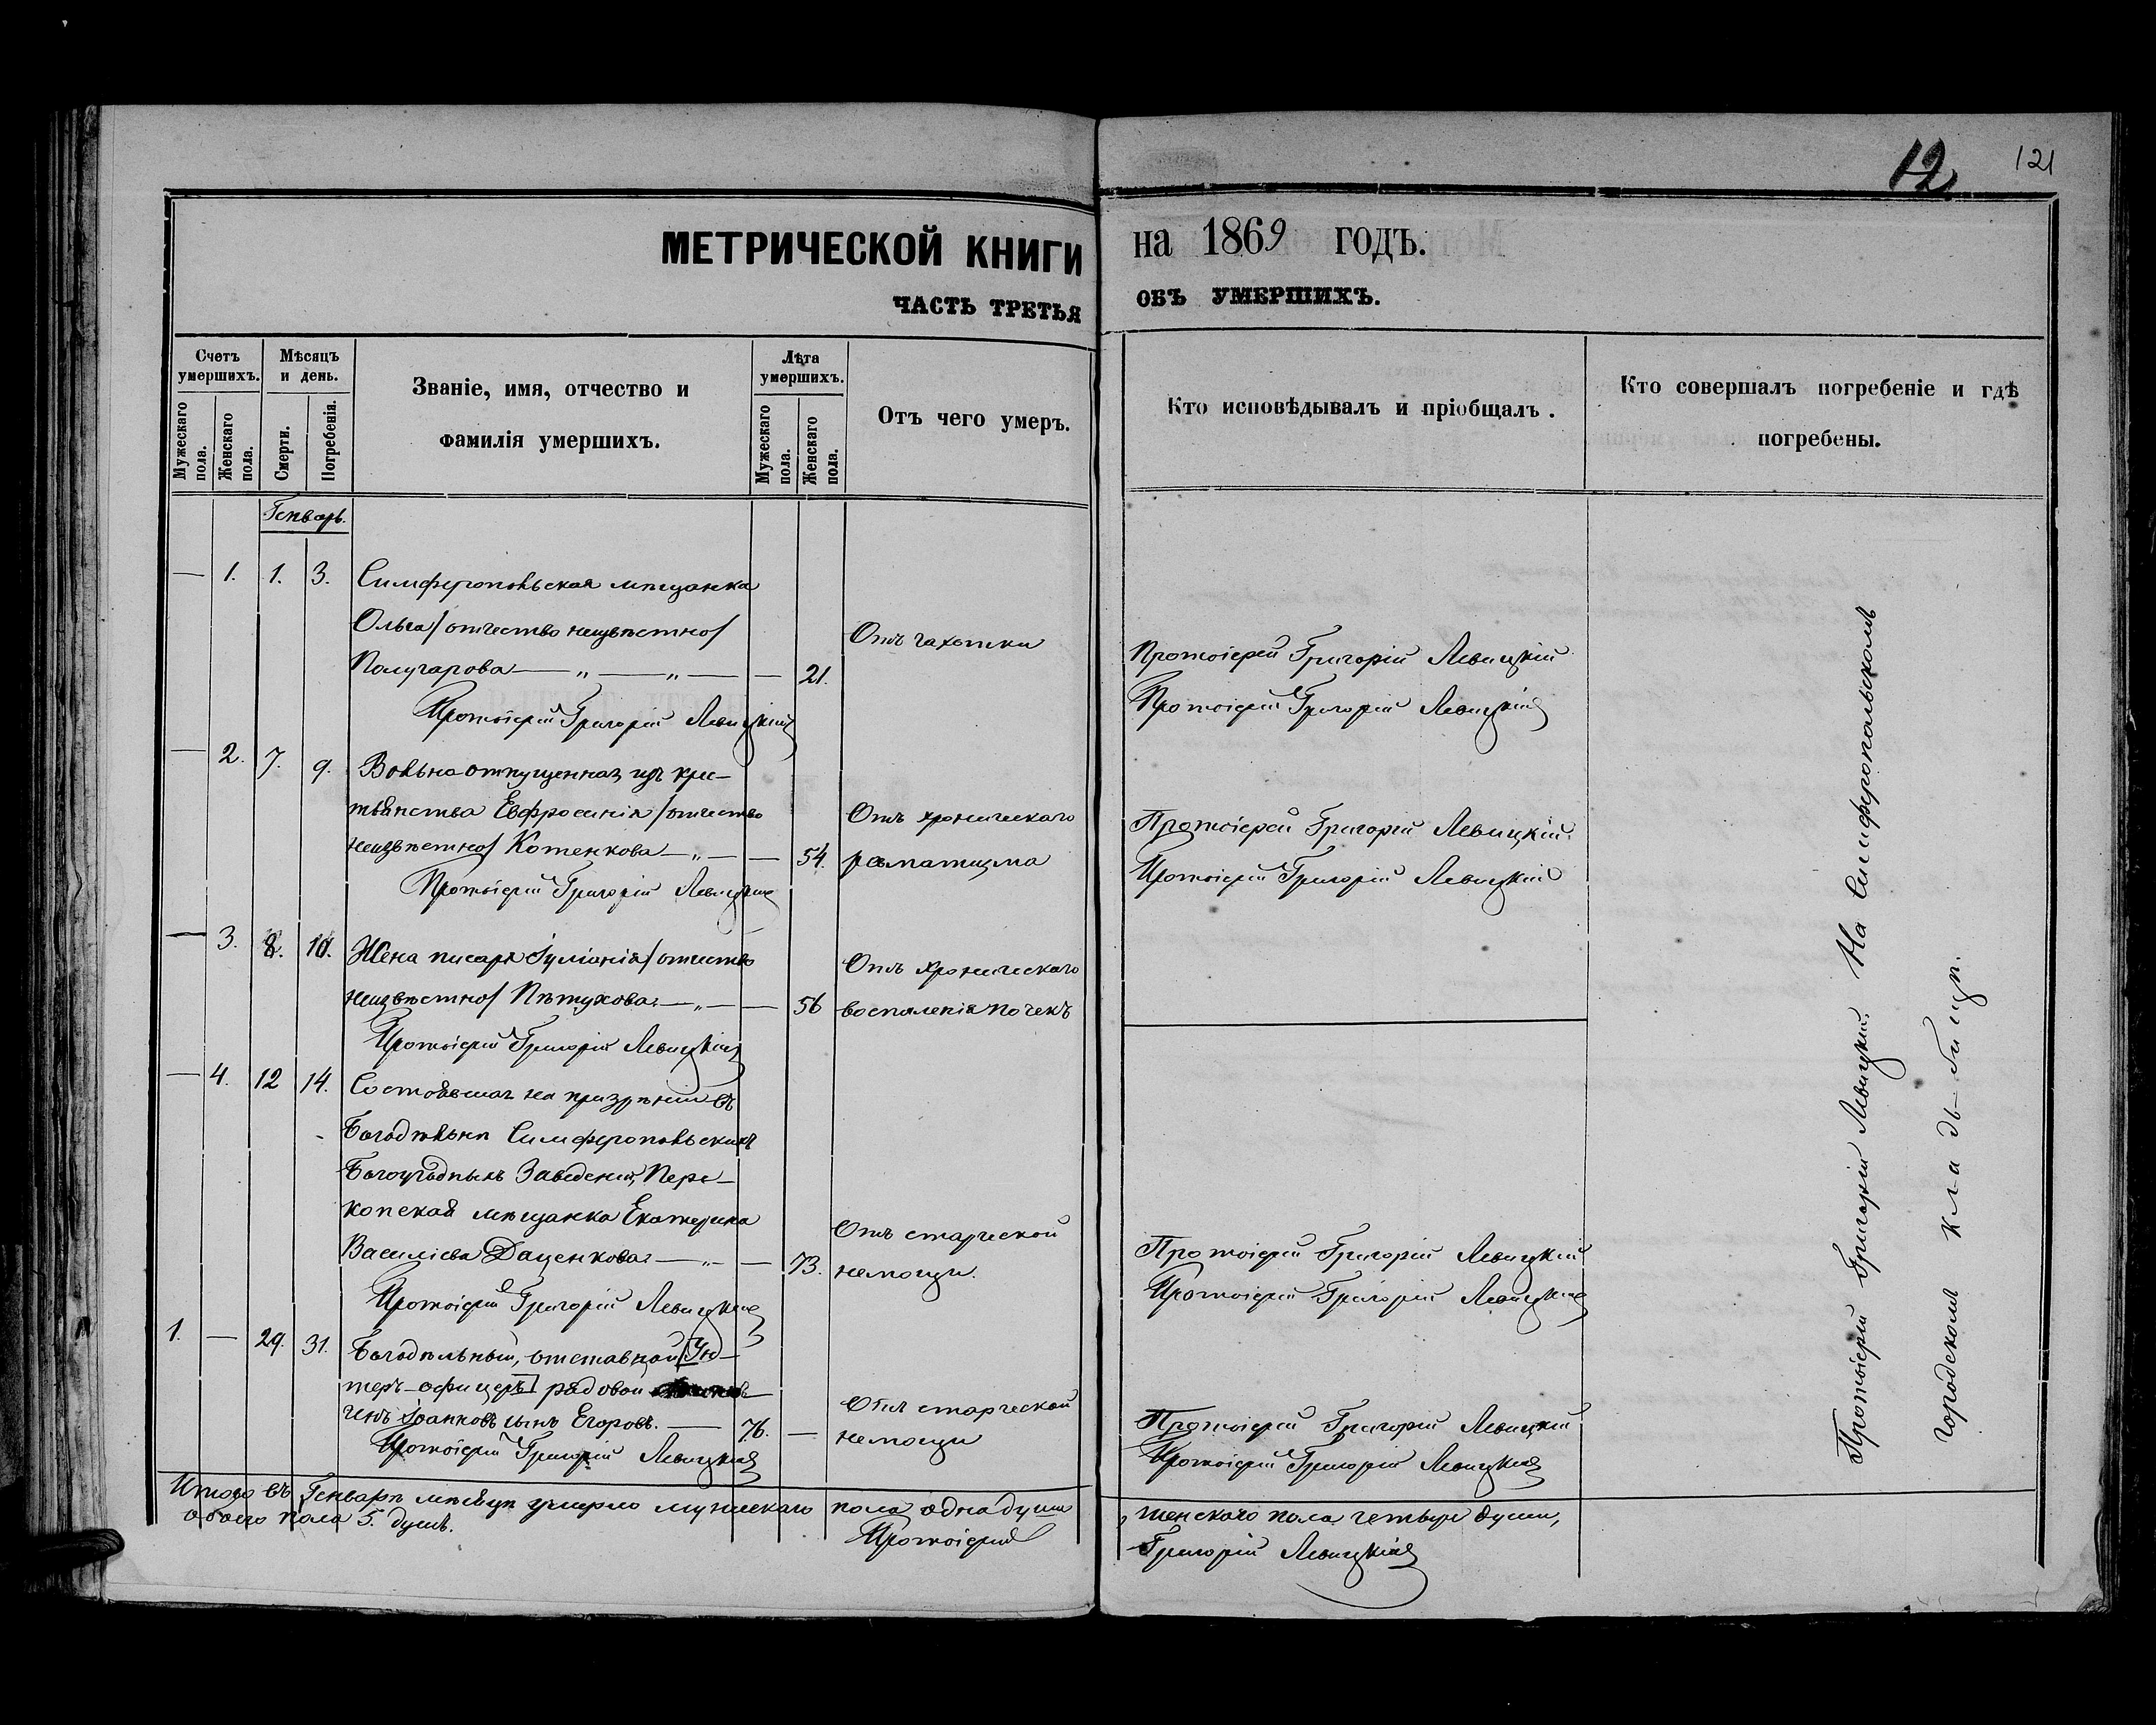 12
121
МЕТРИЧЕСКОЙ КНИГИ на 1869 ГОДЪ.
ЧАСТЬ ТРЕТЬЯ ОБЪ УМЕРШИХЪ.
Счетъ умершихъ.
Мужескаго пола.
Женскаго пола.
Мѣсяцъ и день.
Смерти.
Погребенія.
Званіе, имя, отчество и
фамилія умершихъ.
Лѣта умершихъ.
Мужескаго пола.
Женскаго пола.
Отъ чего умеръ.
Кто исповѣдывалъ и пріобщалъ.
Кто совершалъ погребеніе и гдѣ
погребены.
Генварь.
— 1. 1. 3. Симферопольская мѣщанка
Ольга /отчество неизвѣстно/ Отъ чахотки
Получарова — „ — „ — — 21. Протоіерей Григорій Левицкій
Протоіерей Григорій Левицкій Протоіерей Григорій Левицкій
— 2. 7. 9. Вольноотпущенная изъ кре-
стьянства Евфросинія /отчество Отъ хроническаго Протоіерей Григорій Левицкій.
неизвѣстно/ Котенкова — „ — — 54. ревматизма Протоіерей Григорій Левицкій
Протоіерей Григорій Левицкій
— 3. 8. 10. Жена писаря Іуліанія /отчество Отъ хроническаго
неизвѣстно/ Пѣтухова. — „ — — 56 воспаленія почекъ
Протоіерей Григорій Левицкій
— 4. 12 14. Состоявшая на призрѣніи въ
Богодѣльнѣ Симферопольскихъ
Богоугодныхъ Заведеній, Пере-
копская мѣщанка Екатерина Отъ старческой
Василіева Даценкова. — „ — — 73. немощи. Протоіерей Григорій Левицкій
Протоіерей Григорій Левицкій Протоіерей Григорій Левицкій
1. — 29. 31. Богодѣльный, отставной [Ун-
теръ-офицеръ] рядовой Отъ старческой
Іоанновъ сынъ Егоровъ. — 76. — немощи Протоіерей Григорій Левицкій
Протоіерей Григорій Левицкій Протоіерей Григорій Левицкій
Протоіерей Григорій Левицкій. На Симферопольскомъ
городскомъ кла-дь-би-щѣ.
Итого въ Генварѣ мѣсяцѣ умерло мужескаго пола одна душа, женскаго пола четыре души,
обоего пола 5. душъ.
Протоіерей Григорій Левицкій